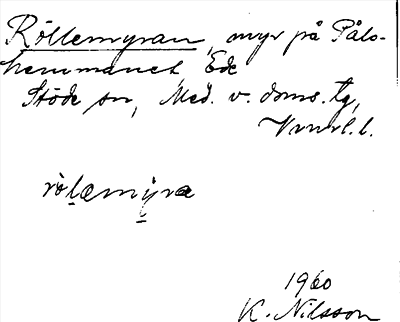 Röllemyran, myr på Påls-
hemmanet, Ede
Stöde sn, Med. v. doms. tg,
Vrnrl. l.
rö̀læmýra
1960
K. Nilsson